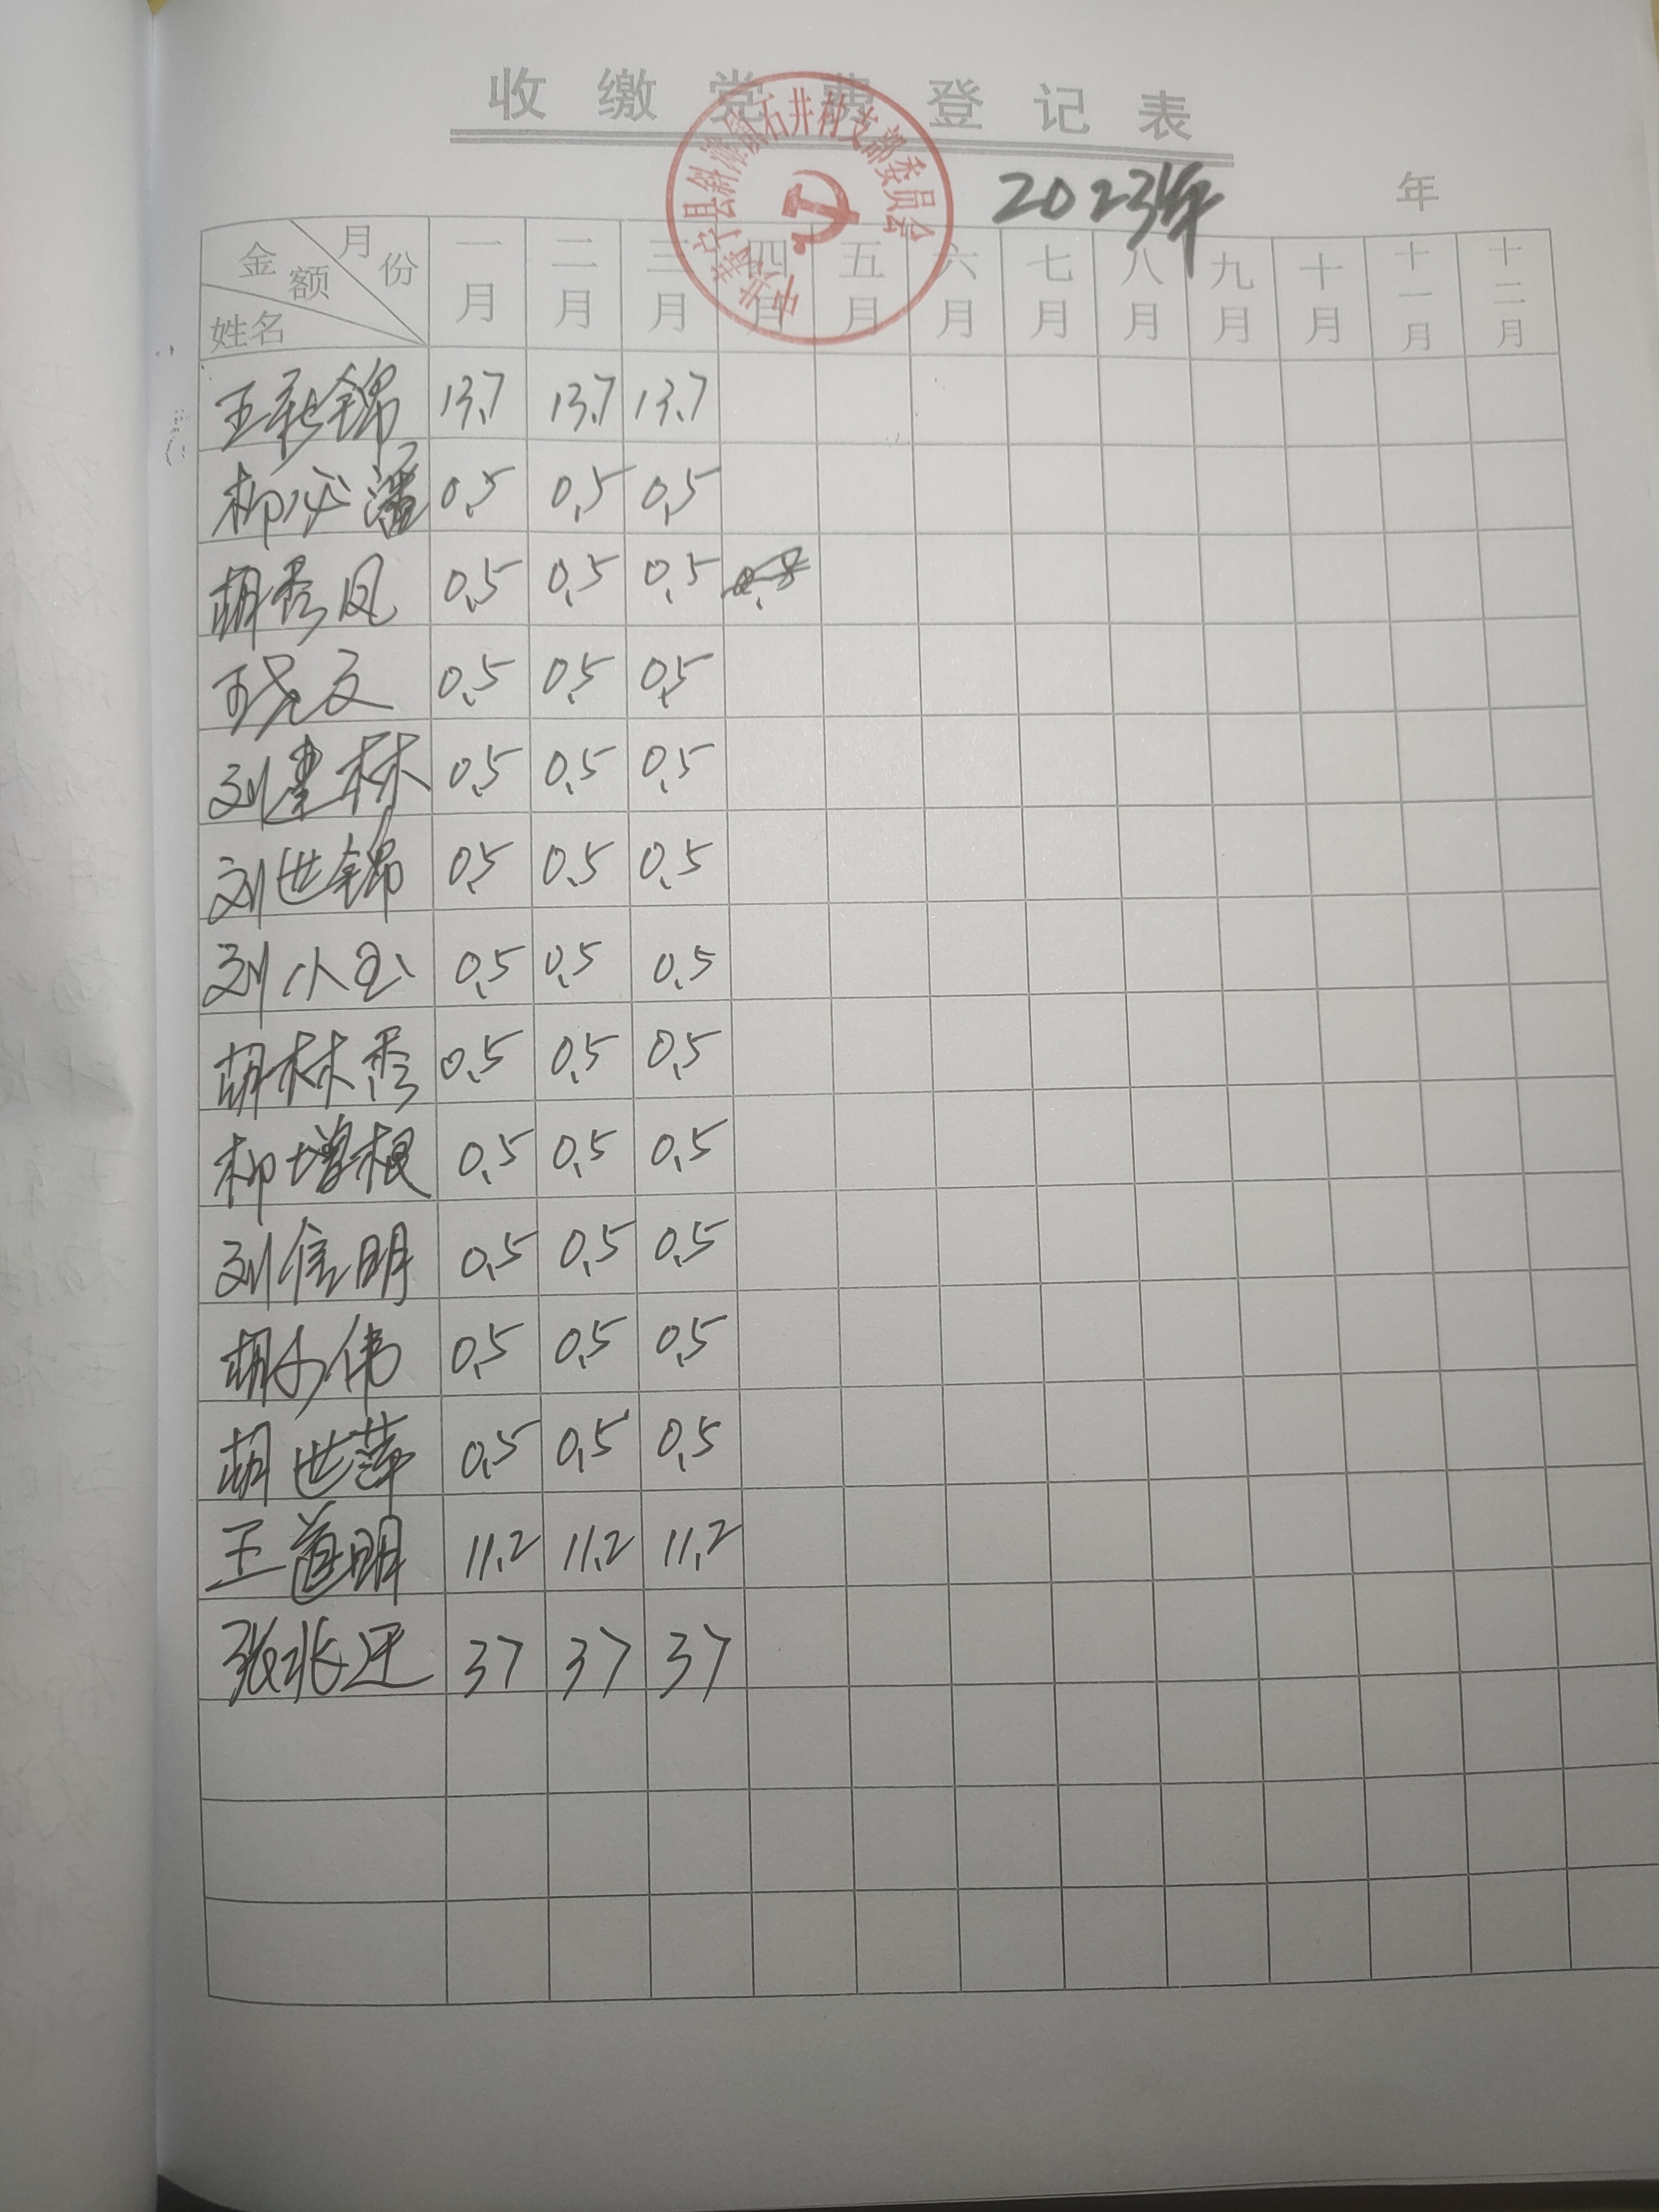 收缴党费登记表
中共寿宁县斜滩镇石井村支部委员会
2023年 年
金额 月份 姓名 一月 二月 三月 四月 五月 六月 七月 八月 九月 十月 十一月 十二月
王 锦 13.7 13.7 13.7
柳必潘 0.5 0.5 0.5
胡秀凤 0.5 0.5 0.5
0.5 0.5 0.5
刘建林 0.5 0.5 0.5
刘世锦 0.5 0.5 0.5
刘小玉 0.5 0.5 0.5
胡林秀 0.5 0.5 0.5
柳增根 0.5 0.5 0.5
刘信明 0.5 0.5 0.5
胡 伟 0.5 0.5 0.5
胡世萍 0.5 0.5 0.5
王道明 11.2 11.2 11.2
张 37 37 37